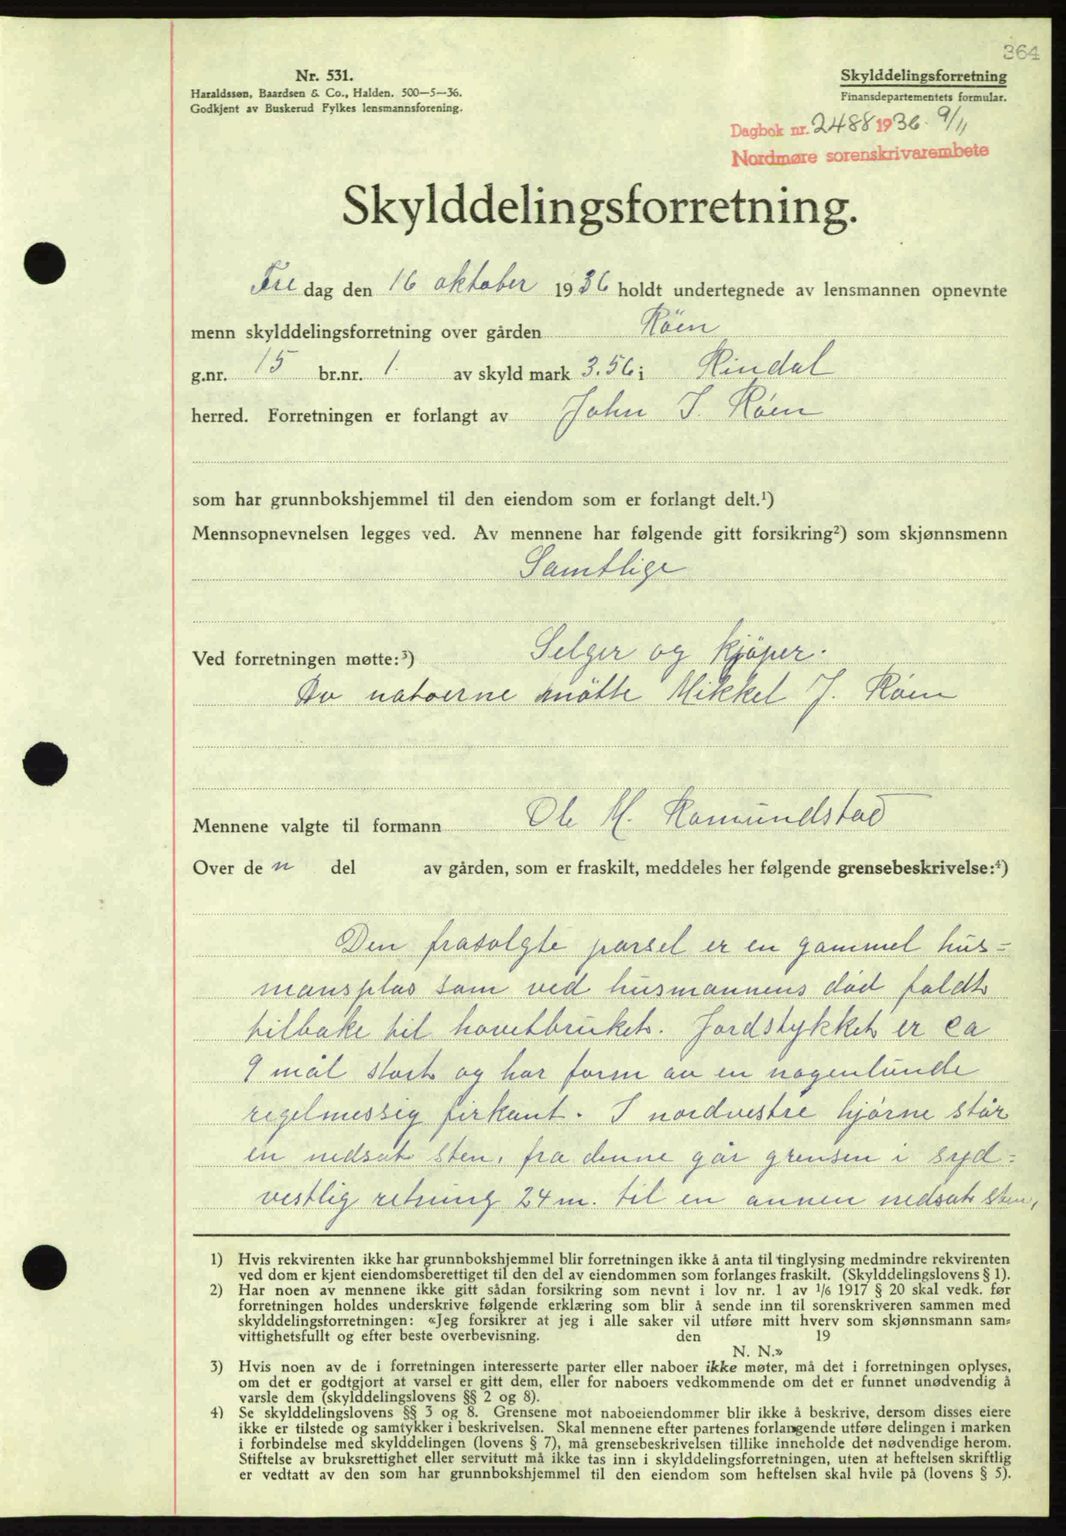 364
Nr. 531.
Haraldssøn, Baardsen & Co., Halden. 500—5—36.
Godkjent av Buskerud Fylkes lensmannsforening.
Skylddelingsforretning
Finansdepartementets formular.
Dagbok nr. 2488 1936 9/11
Nordmøre sorenskrivarembete
Skylddelingsforretning.
Fredag den 16 oktober 1936 holdt undertegnede av lensmannen opnevnte
menn skylddelingsforretning over gården Röen
g.nr. 15 br.nr. 1. av skyld mark 3.56 i Rindal
herred. Forretningen er forlangt av John I. Röen
som har grunnbokshjemmel til den eiendom som er forlangt delt.¹)
Mennsopnevnelsen legges ved. Av mennene har følgende gitt forsikring²) som skjønnsmenn
Samtlige
Ved forretningen møtte:³) Selger og kjöper.
Av naboerne mötte Mikkel J. Röen
Mennene valgte til formann Ole M. Romundstad
Over den del av gården, som er fraskilt, meddeles her følgende grensebeskrivelse:⁴)
Den frasolgte parsel er en gammel hus=
mansplas som ved husmannens död faldt
tilbake til hovetbruket. Jordstykket er ca
9 mål stort og har form av en nogenlunde
regelmessig firkant. I nordvestre hjörne står
en nedsat sten, fra denne går grensen i syd=
vestlig retning 24 m. til en annen nedsat sten,
1) Hvis rekvirenten ikke har grunnbokshjemmel blir forretningen ikke å anta til tinglysing medmindre rekvirenten
ved dom er kjent eiendomsberettiget til den del av eiendommen som forlanges fraskilt. (Skylddelingslovens § 1).
2) Har noen av mennene ikke gitt sådan forsikring som nevnt i lov nr. 1 av 1/6 1917 § 20 skal vedk. før
forretningen holdes underskrive følgende erklæring som blir å sende inn til sorenskriveren sammen med
skylddelingsforretningen: «Jeg forsikrer at jeg i alle saker vil utføre mitt hverv som skjønnsmann sam=
vittighetsfullt og efter beste overbevisning. den 19
N. N.»
3) Hvis noen av de i forretningen interesserte parter eller naboer ikke møter, må det i forretningen oplyses,
om det er godtgjort at varsel er gitt dem, eller for naboers vedkommende om det er funnet unødvendig å
varsle dem (skylddelingslovens §§ 2 og 8).
4) Se skylddelingslovens §§ 3 og 8. Grensene mot naboeiendommer blir ikke å beskrive, dersom disses eiere
ikke er tilstede og samtykker i beskrivelsen. Skal mennene efter partenes forlangende utføre delingen i marken
i forbindelse med skylddelingen (lovens § 7), må grensebeskrivelsen tillike inneholde det nødvendige herom.
Stiftelse av bruksrettighet eller servitutt må ikke tas inn i skylddelingsforretningen, uten at heftelsen skriftlig
er vedtatt av den som har grunnbokshjemmel til den eiendom som heftelsen skal hvile på (lovens § 5).